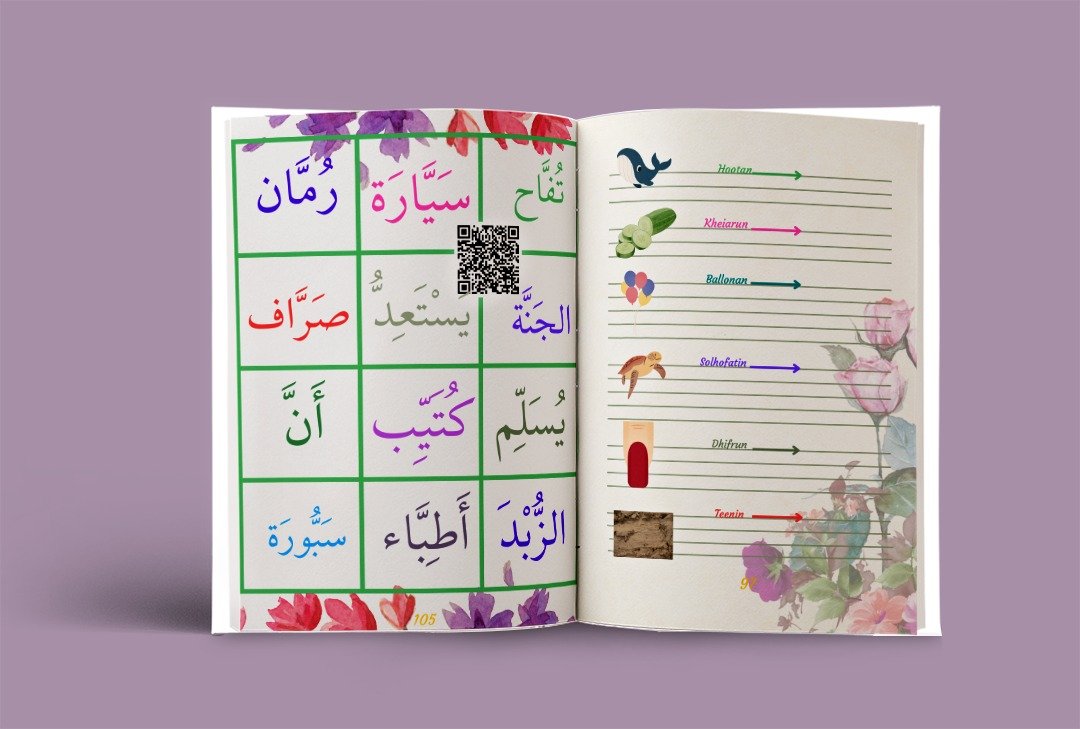 تُفَّاح سَيَّارَة رُمَّان
الجَنَّة يَسْتَعِدُّ صَرَّاف
يُسَلِّم كُتَيِّب أَنَّ
الزُّبْدَ أَطِبَّاء سَبُّورَة
105
Hootan
Kheiarun
Ballonan
Solhofatin
Dhifrun
Teenin